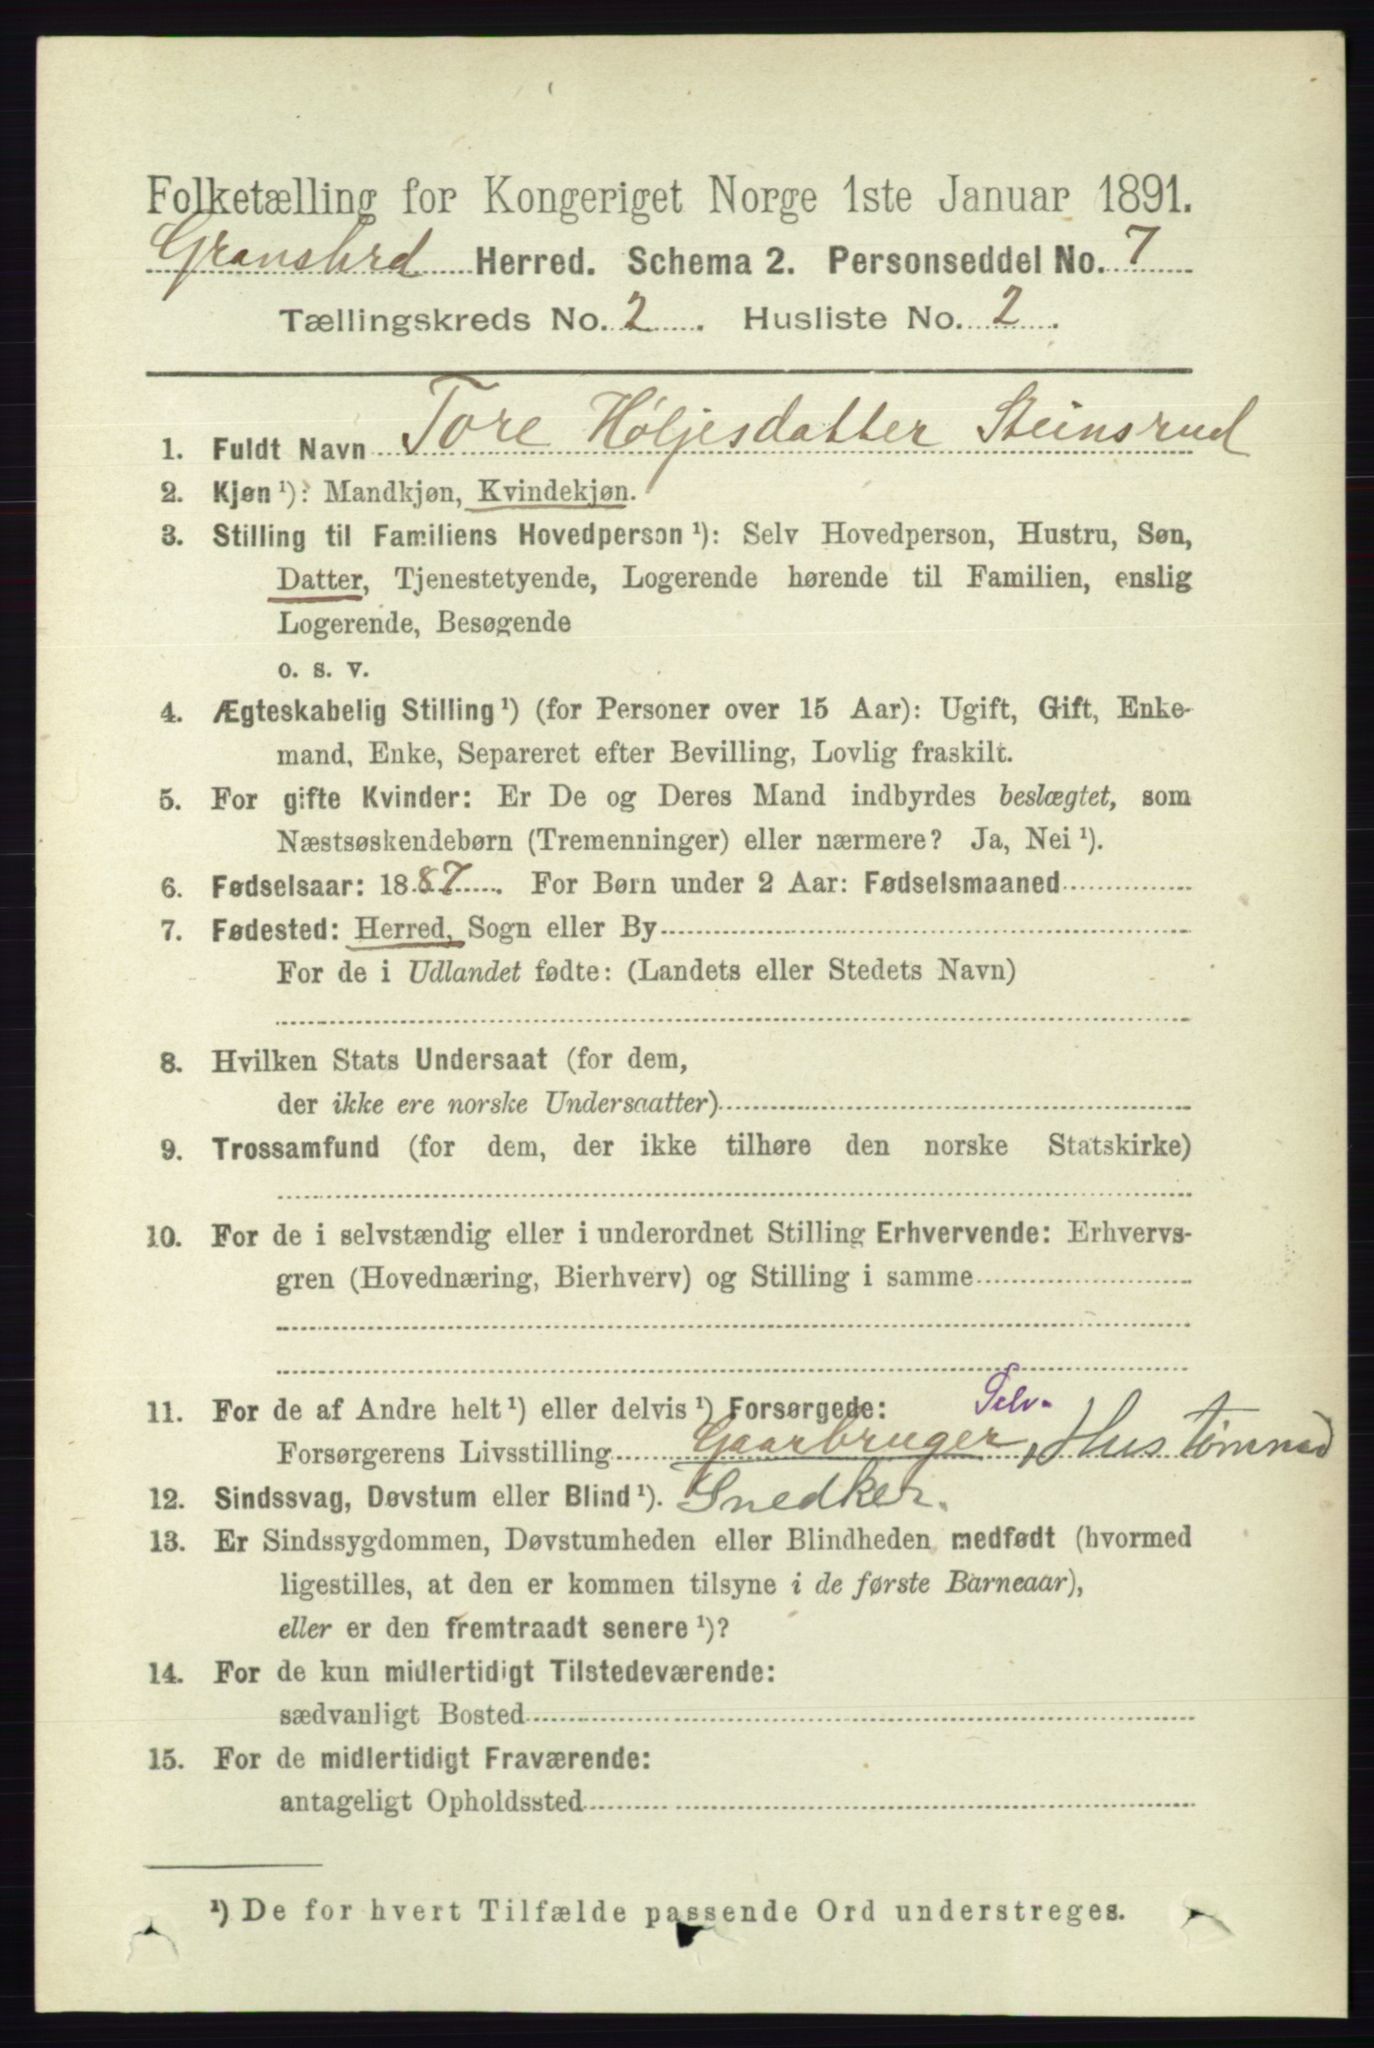 Folketælling for Kongeriget Norge 1ste Januar 1891.
Gransherd Herred. Schema 2. Personseddel No. 7
Tællingskreds No. 2. Husliste No. 2.
1. Fuldt Navn Tore Høljesdatter Steinsrud
2. Kjøn ¹): Mandkjøn, Kvindekjøn.
3. Stilling til Familiens Hovedperson ¹): Selv Hovedperson, Hustru, Søn,
Datter, Tjenestetyende, Logerende hørende til Familien, enslig
Logerende, Besøgende
o. s. v.
4. Ægteskabelig Stilling ¹) (for Personer over 15 Aar): Ugift, Gift, Enke-
mand, Enke, Separeret efter Bevilling, Lovlig fraskilt.
5. For gifte Kvinder: Er De og Deres Mand indbyrdes beslægtet, som
Næstsøskendebørn (Tremenninger) eller nærmere? Ja, Nei ¹).
6. Fødselsaar: 1887. For Børn under 2 Aar: Fødselsmaaned
7. Fødested: Herred, Sogn eller By
For de i Udlandet fødte: (Landets eller Stedets Navn)
8. Hvilken Stats Undersaat (for dem,
der ikke ere norske Undersaatter)
9. Trossamfund (for dem, der ikke tilhøre den norske Statskirke)
10. For de i selvstændig eller i underordnet Stilling Erhvervende: Erhvervs-
gren (Hovednæring, Bierhverv) og Stilling i samme
11. For de af Andre helt ¹) eller delvis ¹) Forsørgede: Selv.
Forsørgerens Livsstilling Gaarbruger, Hustømmed
12. Sindssvag, Døvstum eller Blind ¹). Snedker.
13. Er Sindssygdommen, Døvstumheden eller Blindheden medfødt (hvormed
ligestilles, at den er kommen tilsyne i de første Barneaar),
eller er den fremtraadt senere ¹)?
14. For de kun midlertidigt Tilstedeværende:
sædvanligt Bosted
15. For de midlertidigt Fraværende:
antageligt Opholdssted
¹) De for hvert Tilfælde passende Ord understreges.